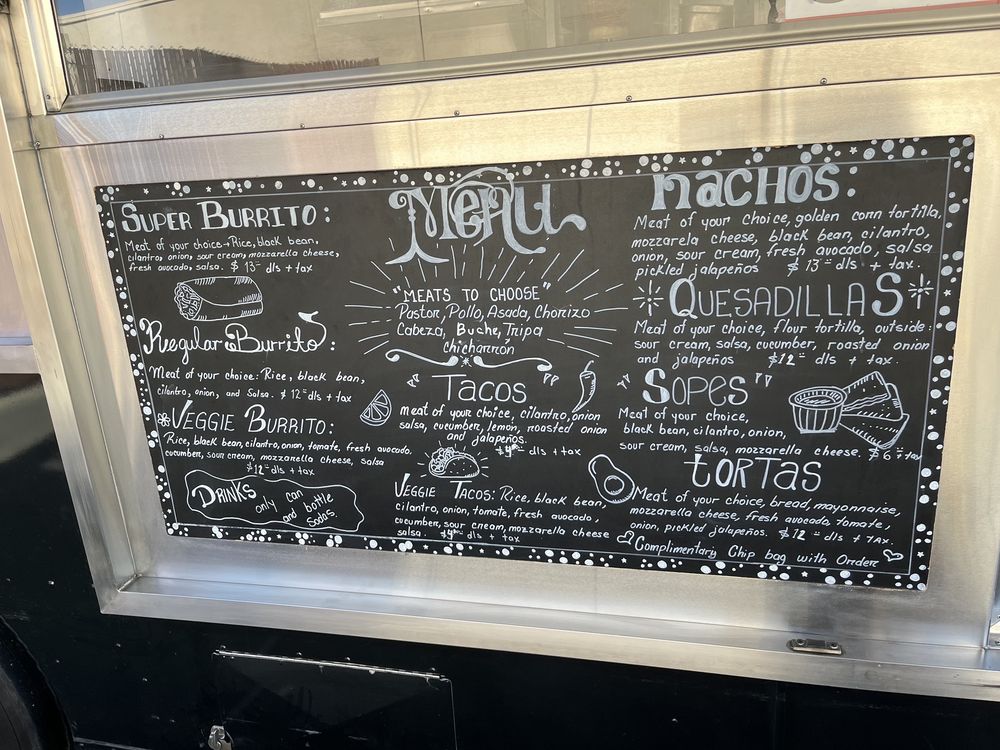 Menu
SUPER BURRITO:
Meat of your choice → Rice, black bean,
cilantro, onion, sour cream, mozzarella cheese,
fresh avocado, salsa. $13= dls + tax
Regular Burrito:
Meat of your choice: Rice, black bean,
cilantro, onion, and Salsa. $12= dls + tax
VEGGIE BURRITO:
Rice, black bean, cilantro, onion, tomate, fresh avocado,
cucumber, sour cream, mozzarella cheese, salsa
$12= dls + tax
DRINKS
only can
and bottle
Sodas.
"MEATS TO CHOOSE"
Pastor, Pollo, Asada, Chorizo
Cabeza, Buche, Tripa
chicharron
"TACOS"
meat of your choice, cilantro, onion
salsa, cucumber, lemon, roasted onion
and jalapeños.
$4= dls + tax
VEGGIE TACOS: Rice, black bean,
cilantro, onion, tomate, fresh avocado,
cucumber, sour cream, mozzarella cheese
salsa. $4= dls + tax
nACHOS:
Meat of your choice, golden corn tortilla,
mozzarela cheese, black bean, cilantro,
onion, sour cream, fresh avocado, salsa
pickled jalapeños $13= dls + tax.
QUESADILLAS
Meat of your choice, flour tortilla, outside:
sour cream, salsa, cucumber, roasted onion
and jalapeños $12= dls + tax.
"SOPES"
Meat of your choice,
black bean, cilantro, onion,
sour cream, salsa, mozzarella cheese. $6 + tax
tORTAS
Meat of your choice, bread, mayonnaise,
mozzarella cheese, fresh avocado, tomate,
onion, pickled jalapeños. $12= dls + TAX.
Complimentary Chip bag with Order